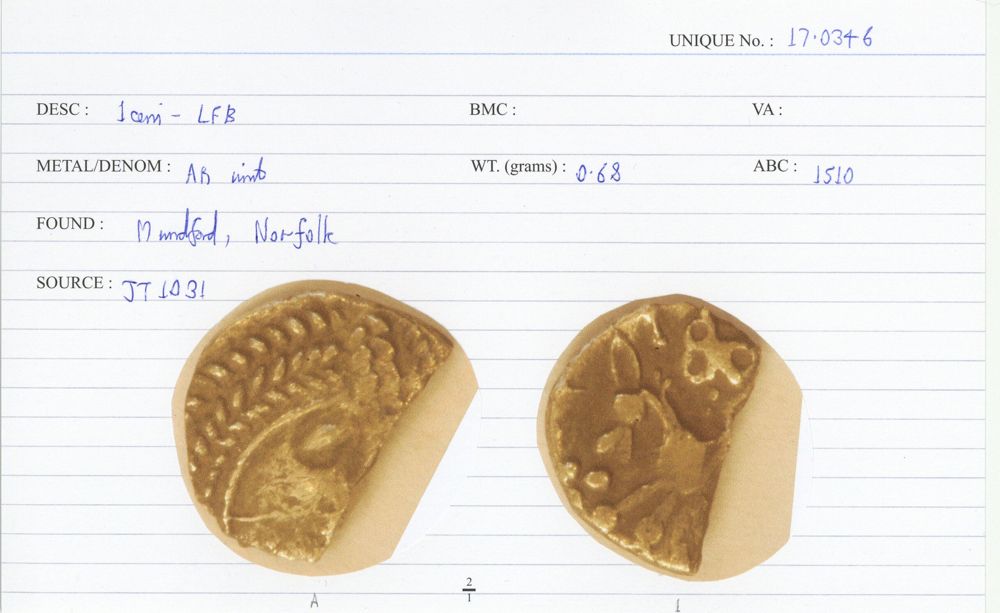 UNIQUE No. : 17·0346
DESC : Iceni - LFB BMC : VA :
METAL/DENOM : AR unit WT. (grams) : 0·68 ABC : 1510
FOUND : Mundford, Norfolk
SOURCE : JT 1031
2
1
A 1